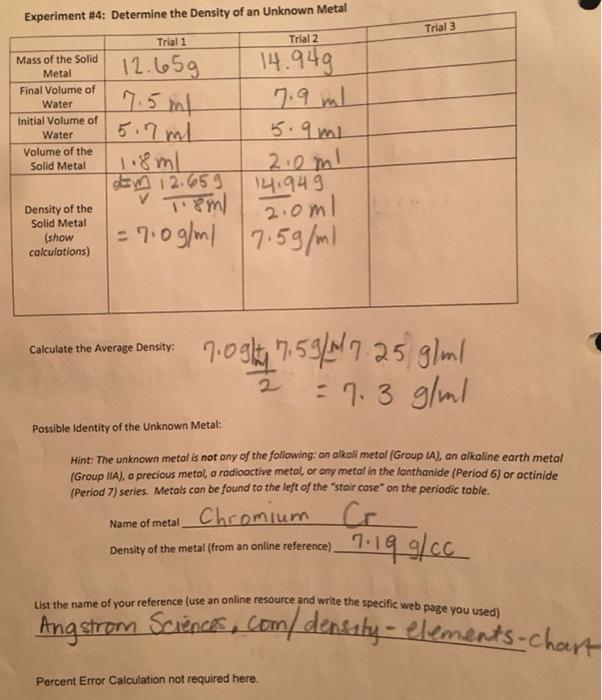 Experiment #4: Determine the Density of an Unknown Metal
Trial 1 Trial 2 Trial 3
Mass of the Solid Metal 12.65g 14.94g
Final Volume of Water 7.5 ml 7.9 ml
Initial Volume of Water 5.7 ml 5.9 ml
Volume of the Solid Metal 1.8 ml 2.0 ml
Density of the Solid Metal (show calculations)
d=m/v 12.65g 14.94g
1.8ml 2.0ml
= 7.0g/ml 7.5g/ml
Calculate the Average Density: 7.0g/ml + 7.5g/ml 7.25 g/ml
2 = 7.3 g/ml
Possible Identity of the Unknown Metal:
Hint: The unknown metal is not any of the following: an alkali metal (Group IA), an alkaline earth metal
(Group IIA), a precious metal, a radioactive metal, or any metal in the lanthanide (Period 6) or actinide
(Period 7) series. Metals can be found to the left of the "stair case" on the periodic table.
Name of metal Chromium Cr
Density of the metal (from an online reference) 7.19 g/cc
List the name of your reference (use an online resource and write the specific web page you used)
Angstrom Sciences.com/density-elements-chart
Percent Error Calculation not required here.